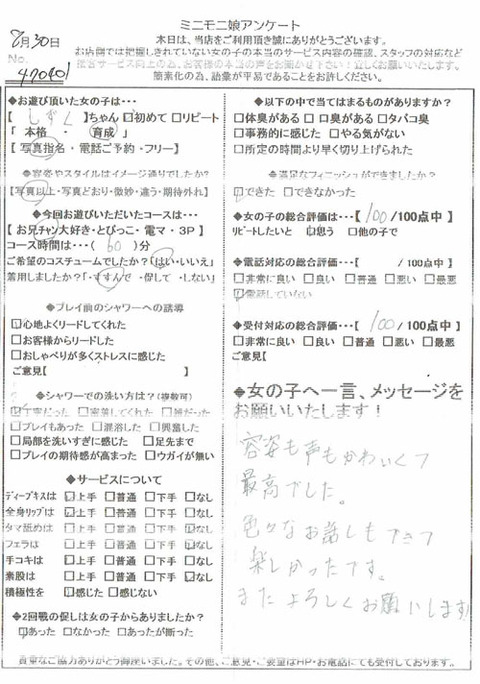 ミニモニ娘アンケート
8月30日
本日は、当店をご利用頂き誠にありがとうございます。
お店側では把握しきれていない女の子の本当のサービス内容の確認、スタッフの対応など
接客サービス向上の為、お客様の本音の声をお聞かせ下さい！宜しくお願いいたします。
No.
簡素化の為、語彙が平易であることをお許しください。
◆お遊び頂いた女の子は・・・
【 しずく 】ちゃん □初めて □リピート
「 本格 ・ 育成 」
【 写真指名 ・ 電話ご予約 ・ フリー 】
◆容姿やスタイルはイメージ通りでしたか?
【写真以上・写真どおり・微妙・違う・期待外れ】
◆今回お遊びいただいたコースは・・・
【 お兄チャン大好き・とびっこ・電マ・3P 】
コース時間は・・・( 60 )分
ご希望のコスチュームでしたか?「はい・いいえ」
着用しましたか?「・すすんで ・促して ・しない」
◆プレイ前のシャワーへの誘導
□心地よくリードしてくれた
□お客様からリードした
□おしゃべりが多くストレスに感じた
ご意見【 】
◆シャワーでの洗い方は?(複数可)
□丁寧だった □密着してくれた □雑だった
□プレイもあった □混浴した □興奮した
□局部を洗いすぎに感じた □足先まで
□プレイの期待感が高まった □ウガイが無い
◆サービスについて
ディープキスは □上手 □普通 □下手 □なし
全身リップは □上手 □普通 □下手 □なし
タマ舐めは □上手 □普通 □下手 □なし
フェラは □上手 □普通 □下手 □なし
手コキは □上手 □普通 □下手 □なし
素股は □上手 □普通 □下手 □なし
積極性を □感じた □感じない
◆2回戦の促しは女の子からありましたか?
□あった □なかった □あったが断った
◆以下の中で当てはまるものがありますか?
□体臭がある □口臭がある □タバコ臭
□事務的に感じた □やる気がない
□所定の時間より早く切り上げられた
◆満足なフィニッシュができましたか?
□できた □できなかった
◆女の子の総合評価は・・・【 100 /100点中 】
リピートしたいと □思う □他の子で
◆電話対応の総合評価・・・【 /100点中 】
□非常に良い □良い □普通 □悪い □最悪
□電話していない
◆受付対応の総合評価・・・【 100 /100点中 】
□非常に良い □良い □普通 □悪い □最悪
ご意見【
◆女の子へ一言、メッセージを
お願いいたします！
容姿も声もかわいくて
最高でした。
色々なお話しもできて
楽しかったです。
またよろしくお願いします!
貴重なご協力ありがとう御座いました。その他、ご意見・ご要望はHP・お電話にても受付しております。